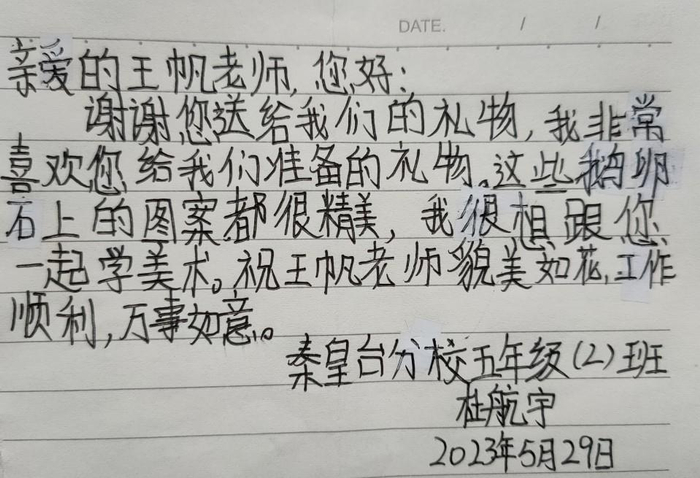 DATE. / /
亲爱的王帆老师,您好:
谢谢您送给我们的礼物,我非常
喜欢您给我们准备的礼物。这些鹅卵
石上的图案都很精美,我很想跟您
一起学美术。祝王帆老师貌美如花,工作
顺利,万事如意。
秦皇台分校五年级(2)班
杜航宇
2023年5月29日